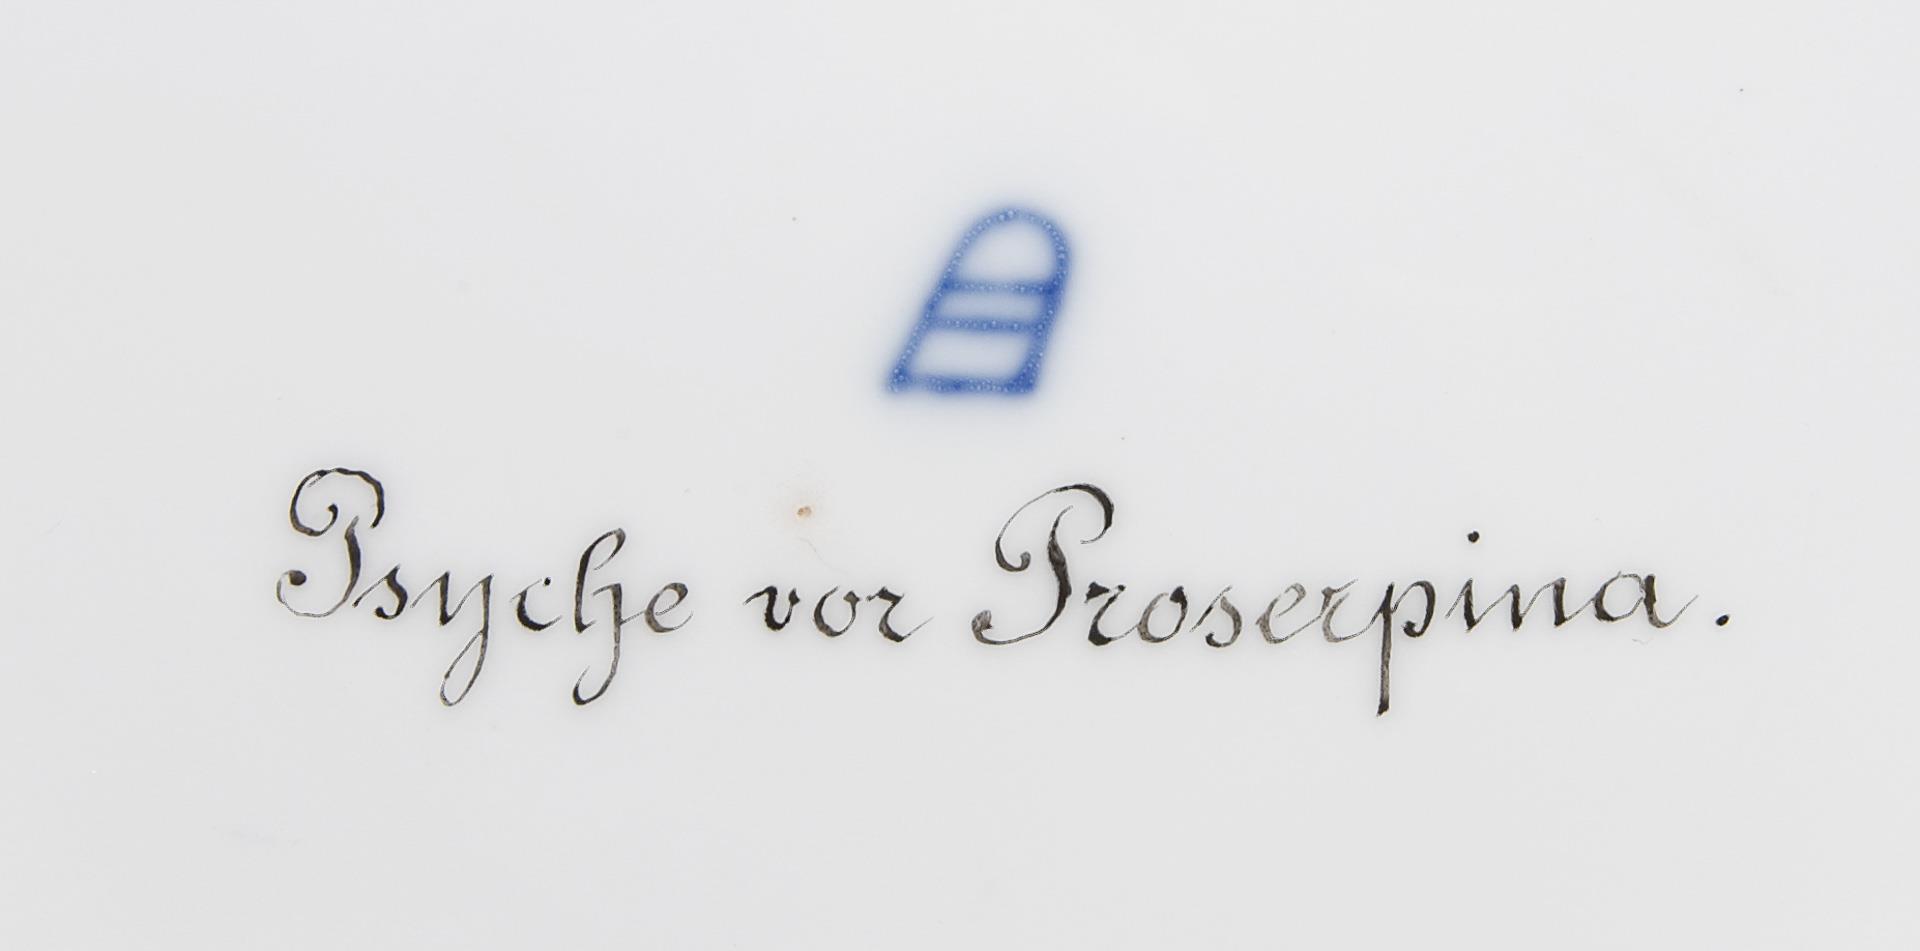 Psyche vor Proserpina.